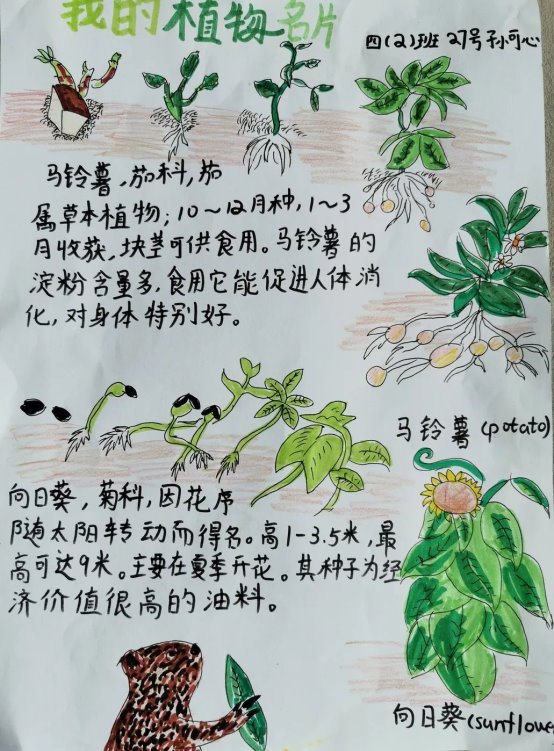 我的植物名片
四(2)班 27号 孙可心
马铃薯,茄科,茄
属草本植物;10~12月种,1~3
月收获,块茎可供食用。马铃薯的
淀粉含量多,食用它能促进人体消
化,对身体特别好。
马铃薯(potato)
向日葵,菊科,因花序
随太阳转动而得名。高1-3.5米,最
高可达9米。主要在夏季开花。其种子为经
济价值很高的油料。
向日葵(sunflowe